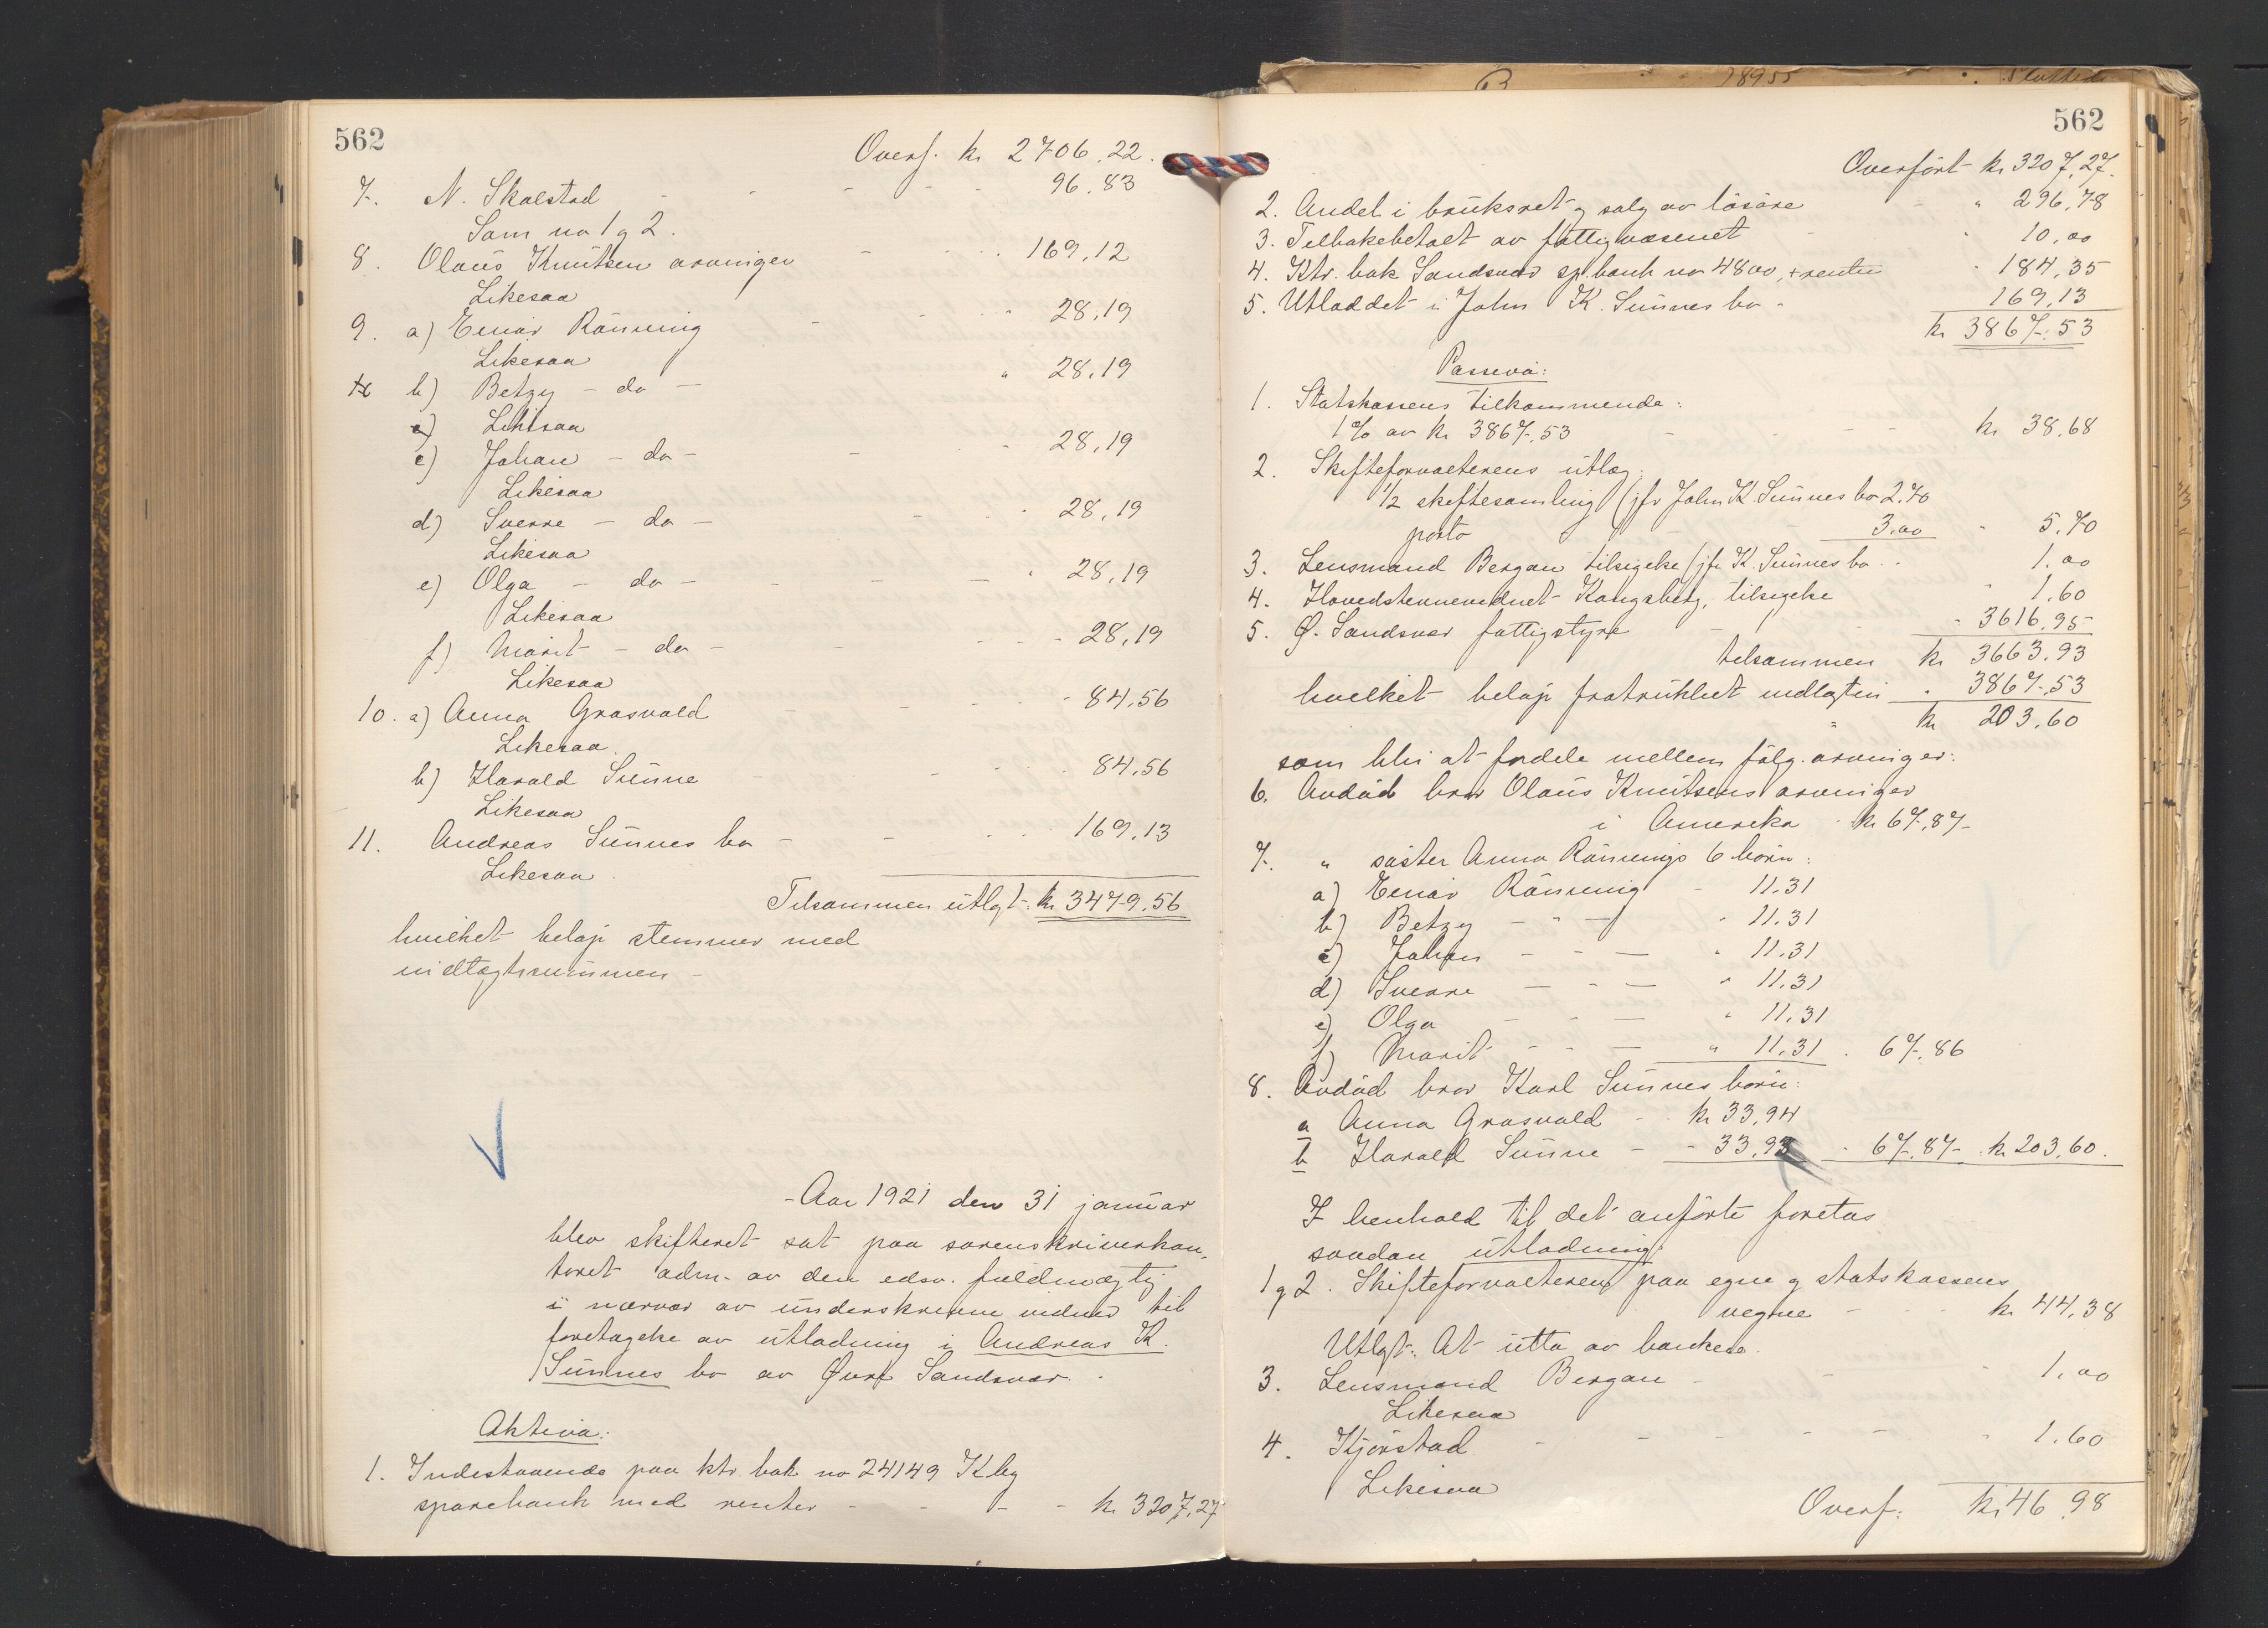 562
Overf. kr 2706.22.
7. N. Skalstad - - - - 96.83
Som no 1 g 2.
8. Olaus Knutsen arvinger - - - 169,12
Likesaa
9. a) Einar Rönning - - " 28,19
Likesaa
b) Betzy - do - " 28,19
Likesaa
c) Johan - do - - - 28,19
Likesaa
d) Sverre - do - - - 28,19
Likesaa
e) Olga - do - - - - 28,19
Likesaa
f) Marit - do - - - - 28,19
Likesaa
10. a) Anna Grosvold - - - - 84,56
Likesaa.
b) Harald Sunne - - - 84,56
Likesaa
11. Andreas Sunnes bo - - - 169,13
Likesaa.
Tilsammen utlgt. kr 3479,56
hvilket beløp stemmer med
indtægtssummen -
- Aar 1921 den 31 januar
blev skifteret sat paa sorenskriverkon-
toret adm. av den edsv. fuldmægtig
i nærvær av underskrevne vidner til
foretagelse av utlodning i Andreas K.
Sunnes bo av Øvre Sandsvær.
Aktiva:
1. Indestaaende paa ktr. bok no 24149 Kbg
sparebank med renter - - - - kr 3207,27
562
Overfört kr 3207,27.
2. Andel i bruksret g salg av lösöre - " 296,78
3. Tilbakebetalt av fattigvæsenet - " 10,00
4. Ktr. bok Sandsvær sp.bank no 4800, + renter " 184,35
5. Utloddet i John K. Sunnes bo - 169,13
kr 3867,53
Passiva:
1. Statskassens tilkommende:
1% av kr 3867,53 - - - - kr 38,68
2. Skifteforvalterens utlæg:
1/2 skiftesamling (jfr John K. Sunnes bo 2.70
porto - 3.00 " 5.70
3. Lensmand Bergan tilsigelse (jfr K. Sunnes bo - 1.00
4. Hovedstevnevidnet Kongsberg, tilsigelse " 1.60
5. Ø. Sandsvær fattigstyre - - 3616,95
tilsammen kr 3663.93
hvilket beløp fratrukket indtægten " 3867,53
" kr 203,60
som bli at fordele mellem følg. arvinger:
6. Avdöd bror Olaus Knutsens arvinger
i Amerika kr 67,87
7. " söster Anna Rönnings 6 börn:
a) Einar Rönning - 11.31
b) Betzy - " - " 11.31
c) Johan - - - " 11.31
d) Sverre - - - " 11.31
e) Olga - - - " 11.31
f) Marit - - - " 11.31 . 67,86
8. Avdöd bror Karl Sunnes börn:
a Anna Grosvold - kr 33,94
b Harald Sunne - - 33,93 - 67,87 kr 203,60.
I henhold til det anförte foretas
saadan utlodning:
1 g 2. Skifteforvalteren paa egne g statskassens
vegne - kr 44,38
Utlgt: At utta av banken.
3. Lensmand Bergan - - " 1,00
Likesaa
4. Kjörstad - - - - - " 1.60
Likesaa
Overf. kr 46,98